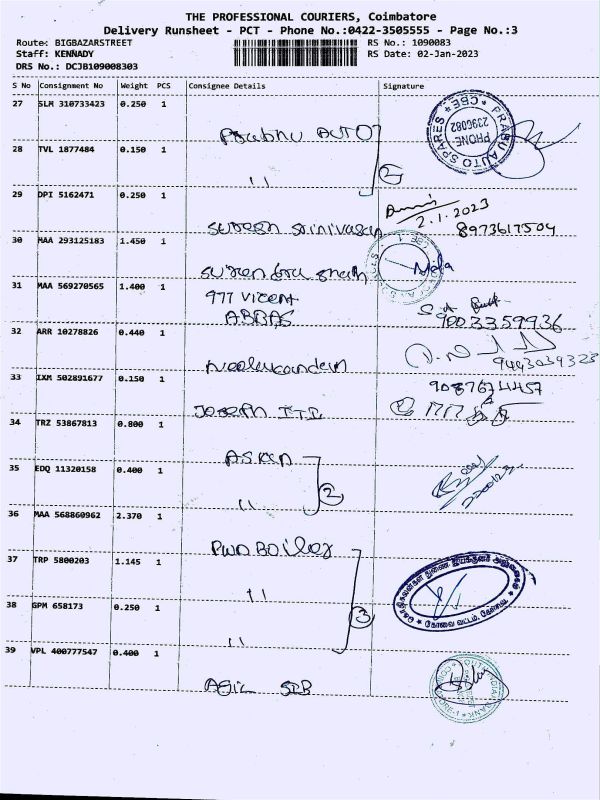 THE PROFESSIONAL COURIERS, Coimbatore
Delivery Runsheet - PCT - Phone No.:0422-3505555 - Page No.:3
Route: BIGBAZARSTREET RS No.: 1090083
Staff: KENNADY RS Date: 02-Jan-2023
DRS No.: DCJB109008303
S No Consignment No Weight PCS Consignee Details Signature
27 SLM 310733423 0.250 1
Prabhu AUTO
PRABU AUTO SPARES * CBE * PHONE 2396082
28 TVL 1877484 0.150 1
11 2
29 DPI 5162471 0.250 1
2.1.2023
Suresh Srinivasan 8973617504
30 MAA 293125183 1.450 1
31 MAA 569270565 1.400 1
977 Vicent
ABBAS
9003359936
32 ARR 10278826 0.440 1
9443039323
33 IXM 502891677 0.150 1
9087674457
JOSEPH ITI
34 TRZ 53867813 0.800 1
35 EDQ 11320158 0.400 1
11 2
36 MAA 568860962 2.370 1
PWD Boiler
37 TRP 5800203 1.145 1
11
38 GPM 658173 0.250 1
11 3
39 VPL 400777547 0.400 1